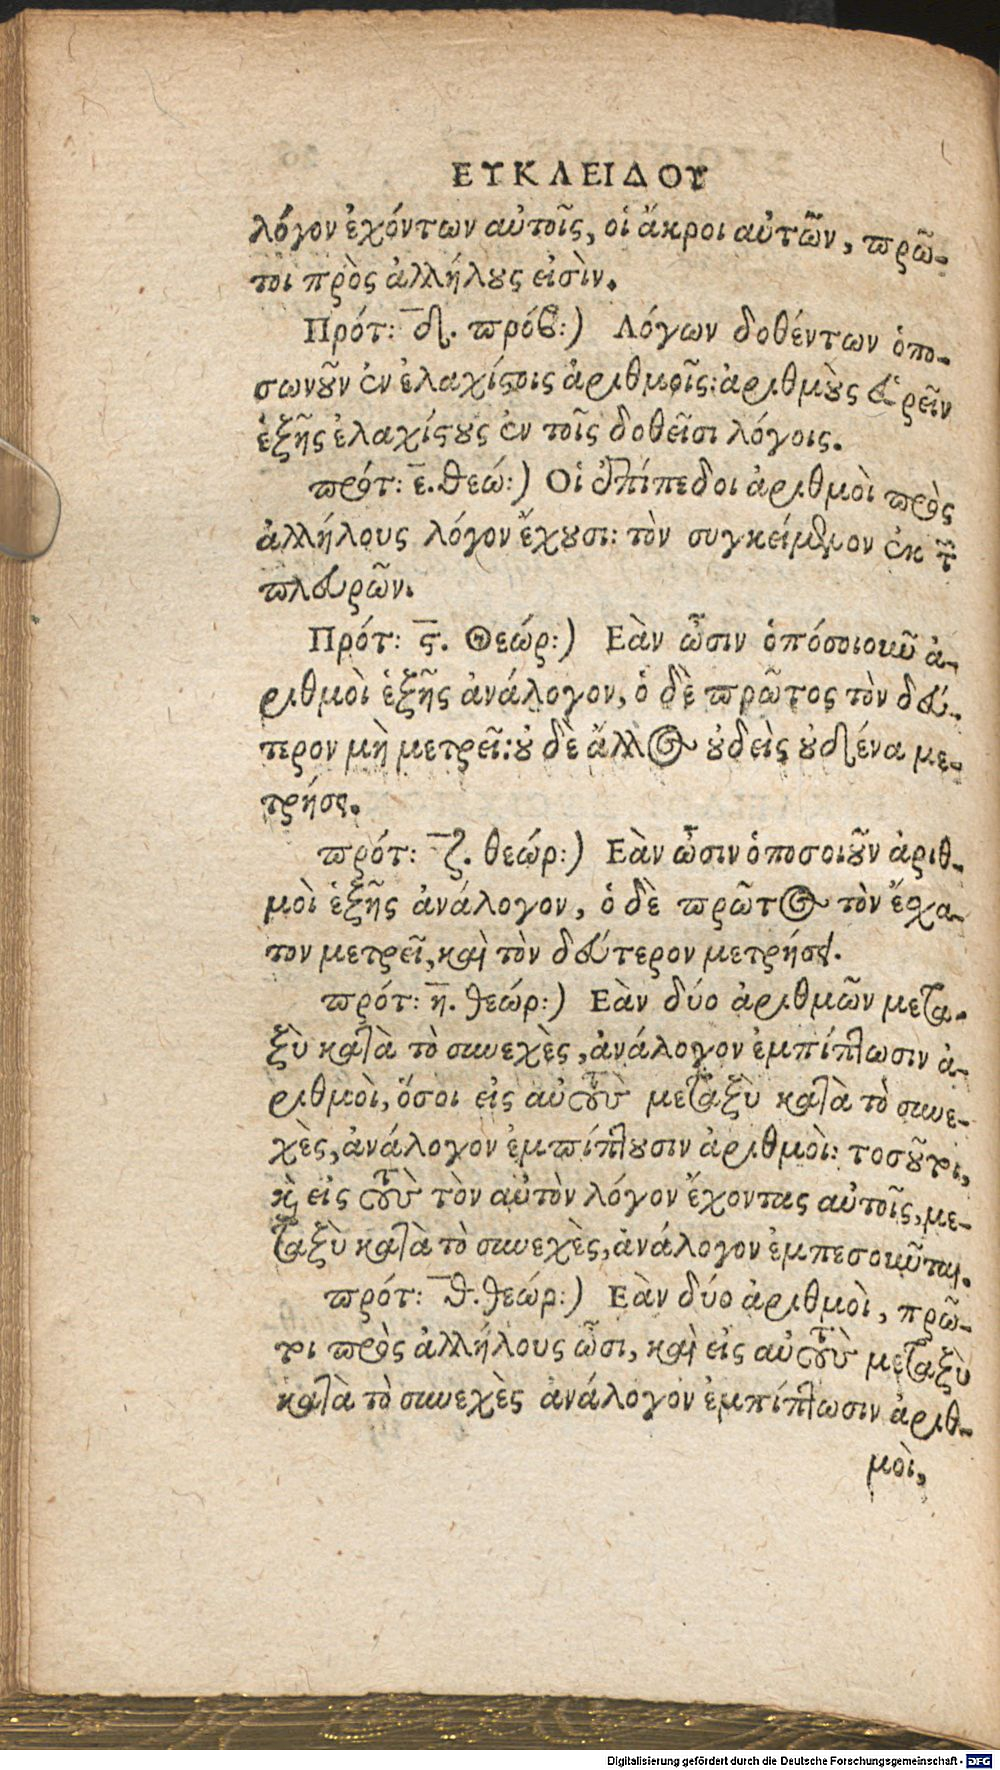 ΕΥΚΛΕΙΔΟΥ
λόγον ἐχόντων αὐτοῖς, οἱ ἄκροι αὐτῶν, πρῶ-
τοι πρὸς ἀλλήλους εἰσὶν.
Πρότ: δ̅. πρόβ:) Λόγων δοθέντων ὁπο-
σωνοῦν ἐν ἐλαχίστοις ἀριθμοῖς: ἀριθμοὺς εὑρεῖν
ἑξῆς ἐλαχίστους ἐν τοῖς δοθεῖσι λόγοις.
πρότ: ε̅. θεώ:) Οἱ ἐπίπεδοι ἀριθμοὶ πρὸς
ἀλλήλους λόγον ἔχουσι: τὸν συγκείμενον ἐκ τῶν
πλευρῶν.
Πρότ: ϛ̅. Θεώρ:) Εὰν ὦσιν ὁπόσοιουῦ ἀ-
ριθμοὶ ἑξῆς ἀνάλογον, ὁ δὲ πρῶτος τὸν δεύ-
τερον μὴ μετρεῖ: οὐ δὲ ἄλλος οὐδεὶς οὐδένα με-
τρήσει.
πρότ: ζ̅. θεώρ:) Εὰν ὦσιν ὁποσοιοῦν ἀριθ-
μοὶ ἑξῆς ἀνάλογον, ὁ δὲ πρῶτος τὸν ἔσχα-
τον μετρεῖ, καὶ τὸν δεύτερον μετρήσει.
πρότ: η̅. θεώρ:) Εὰν δύο ἀριθμῶν μετα-
ξὺ κατὰ τὸ συνεχὲς, ἀνάλογον ἐμπίπτωσιν ἀ-
ριθμοὶ, ὅσοι εἰς αὐτοὺς μεταξὺ κατὰ τὸ συνε-
χὲς, ἀνάλογον ἐμπίπτουσιν ἀριθμοὶ: τοσοῦτοι,
καὶ εἰς τοὺς τὸν αὐτὸν λόγον ἔχοντας αὐτοῖς, με-
ταξὺ κατὰ τὸ συνεχὲς, ἀνάλογον ἐμπεσουῦται.
πρότ: θ̅. θεώρ:) Εὰν δύο ἀριθμοὶ, πρῶ-
τοι πρὸς ἀλλήλους ὦσι, καὶ εἰς αὐτοὺς μεταξὺ
κατὰ τὸ συνεχὲς ἀνάλογον ἐμπίπτωσιν ἀριθ-
μοὶ,
Digitalisierung gefördert durch die Deutsche Forschungsgemeinschaft - DFG